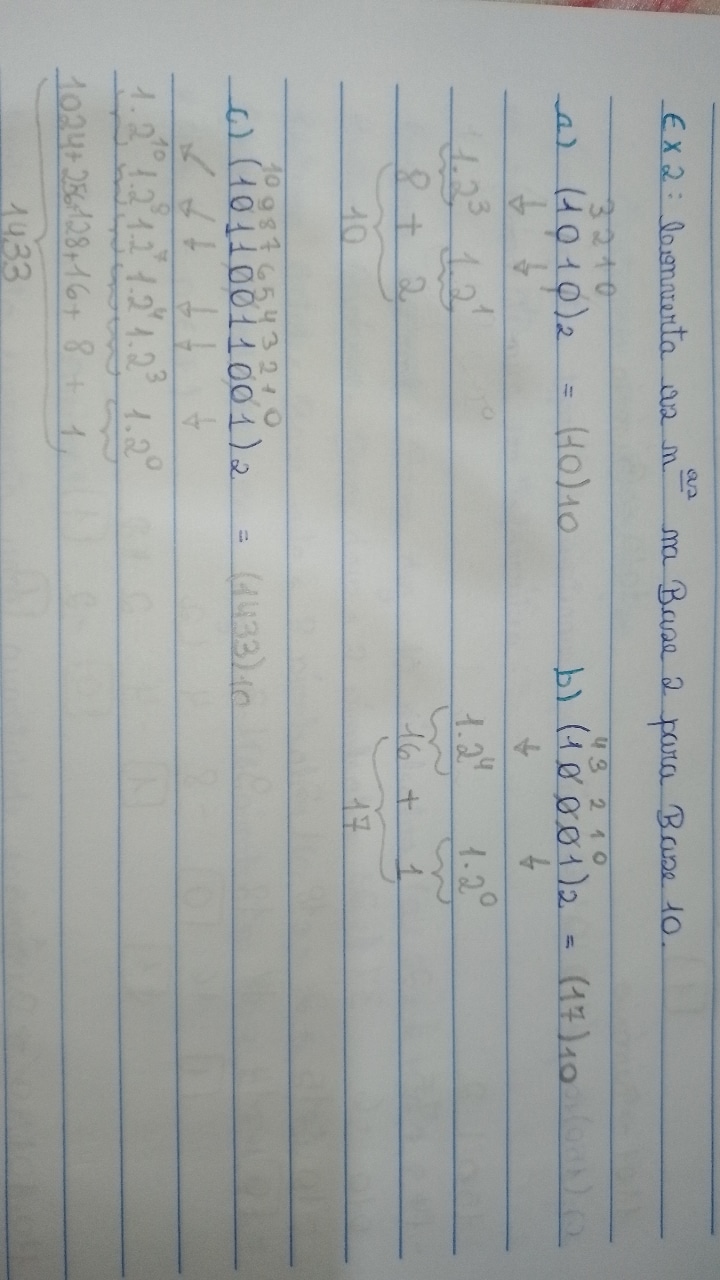 Ex2: Converta os nos na Base 2 para Base 10.
3 2 1 0
a) (1010)2 = (10)10
1.2³ 1.2¹
8 + 2
10
4 3 2 1 0
b) (10001)2 = (17)10
1.2⁴ 1.2⁰
16 + 1
17
10 9 8 7 6 5 4 3 2 1 0
c) (10110011001)2 = (1433)10
1.2¹⁰ 1.2⁸ 1.2⁷ 1.2⁴ 1.2³ 1.2⁰
1024+256+128+16+ 8 + 1
1433